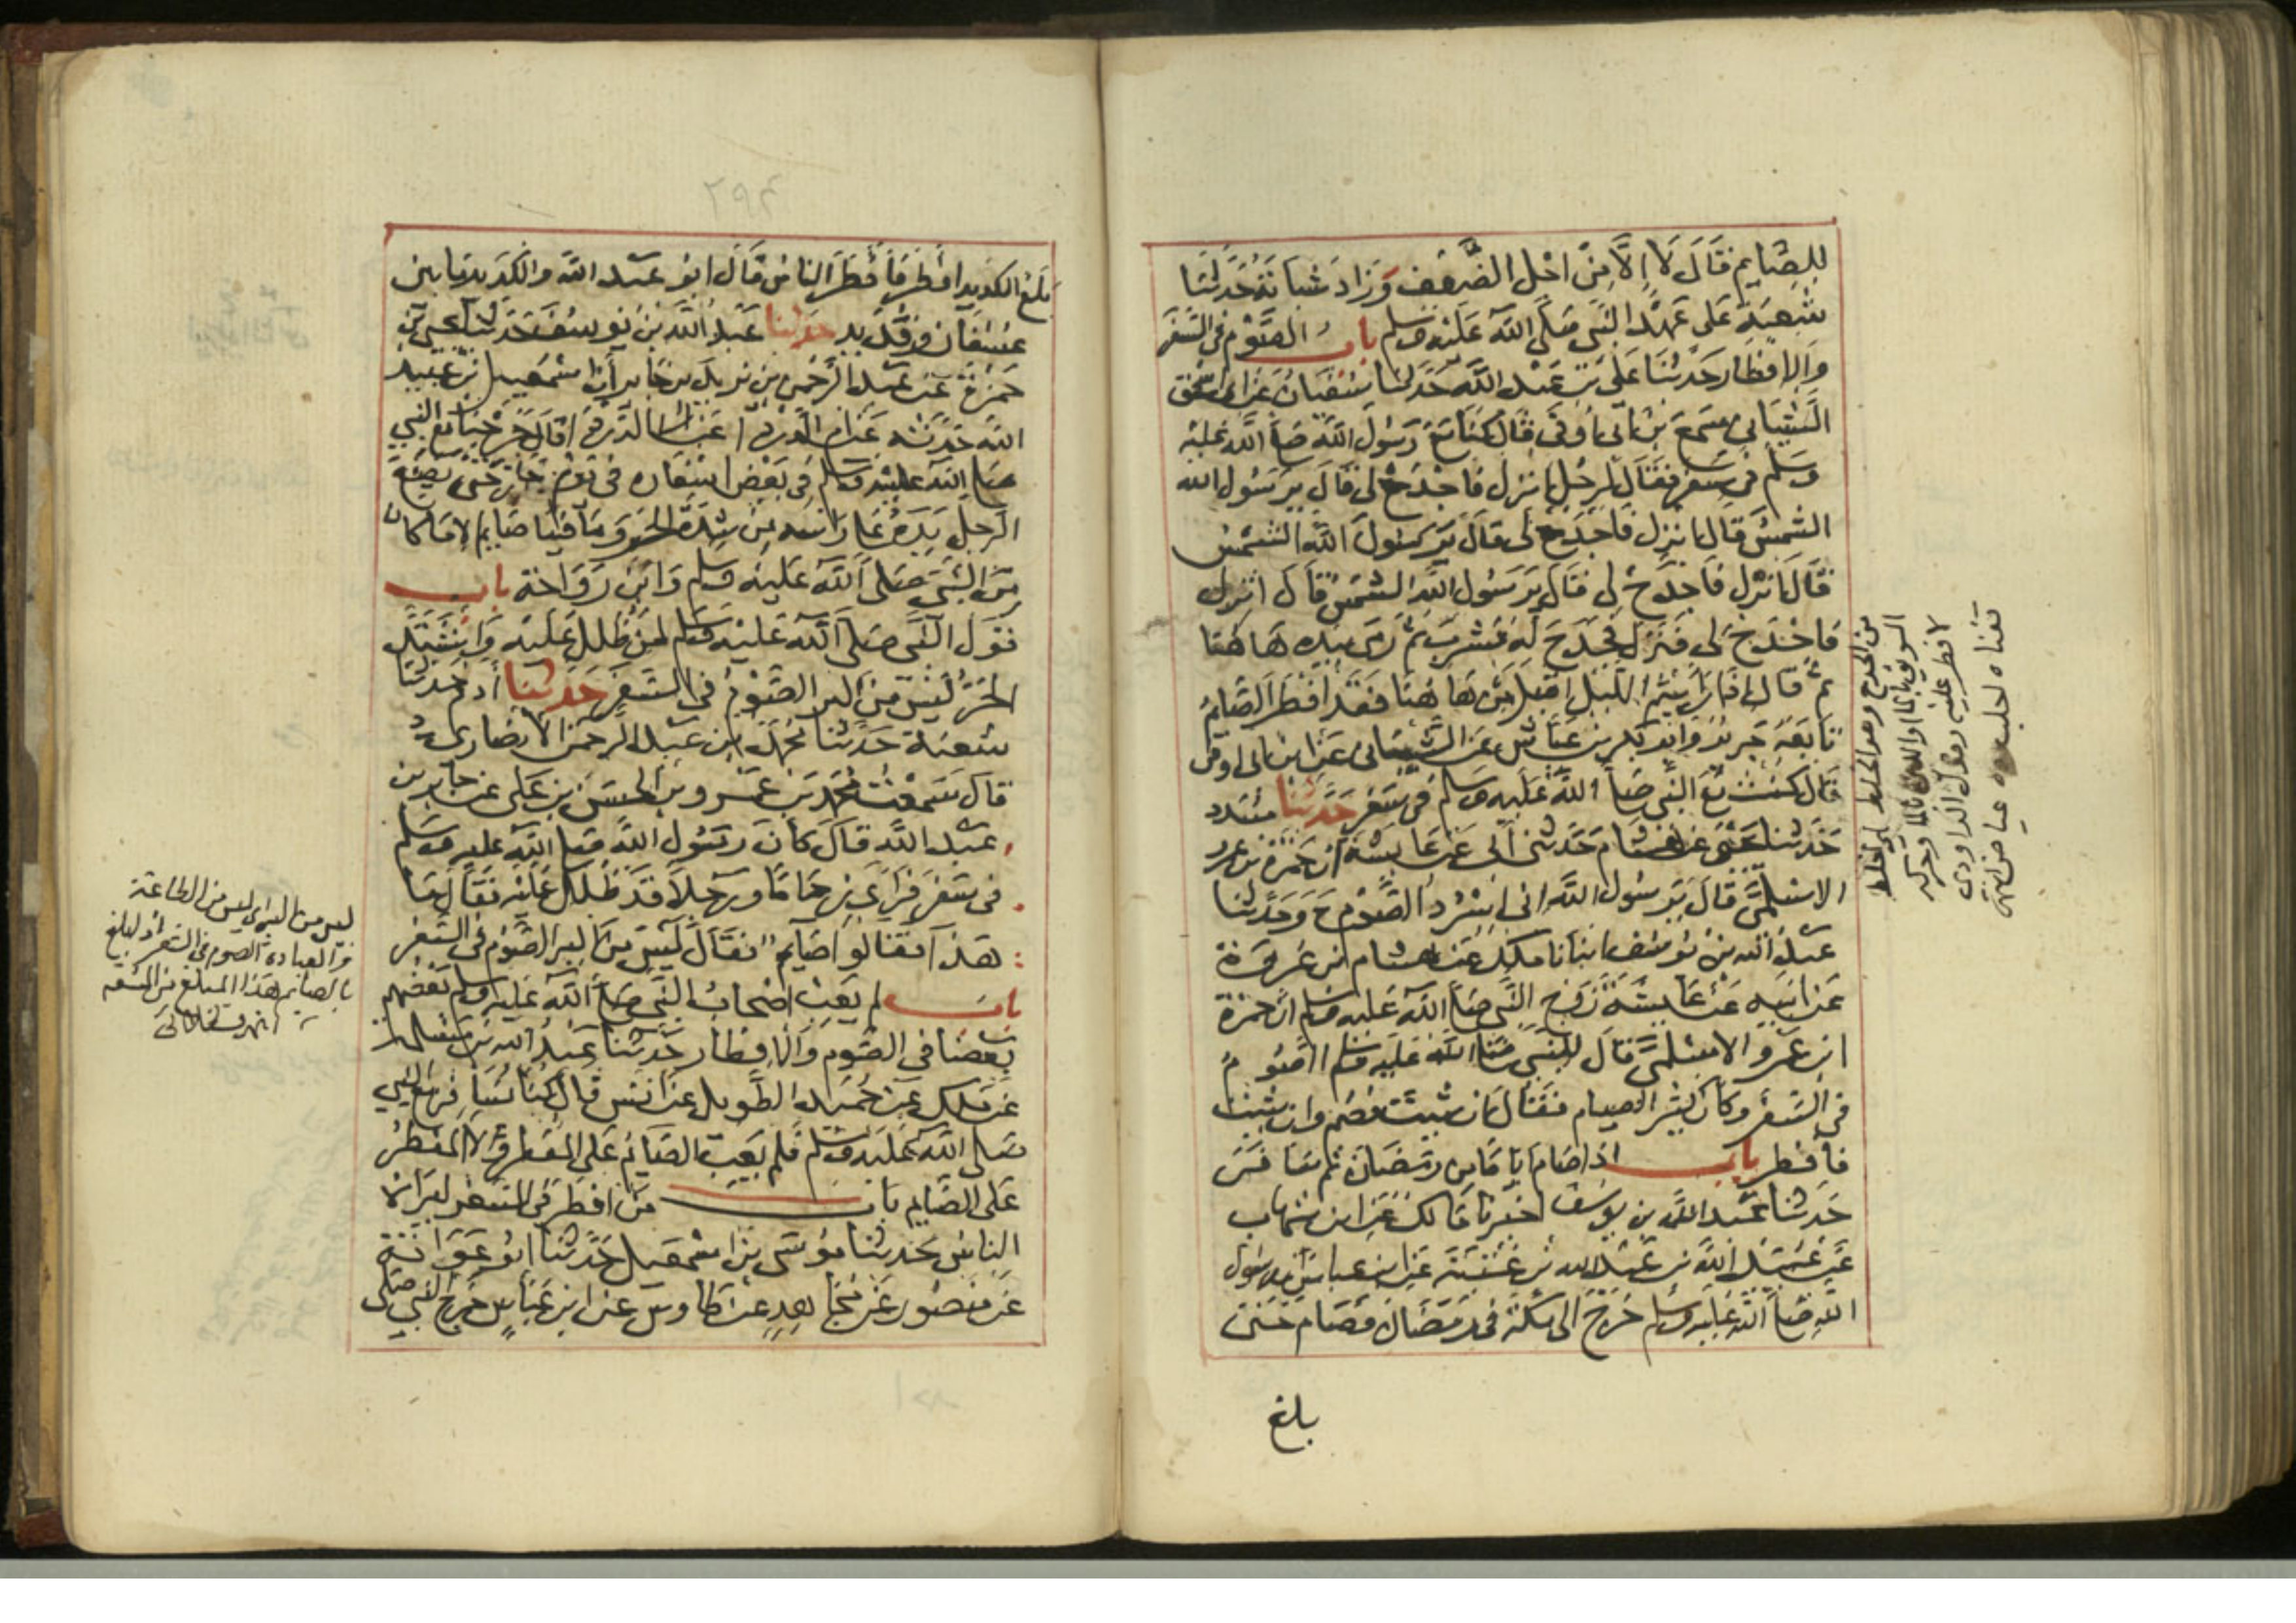 للصايم قال لا الا من اجل الضعف وزاد شبابة حدثنا
شعبة على عهد النبي صلى الله عليه وسلم باب الصوم في السفر
والافطار حدثنا علي بن عبد الله حدثنا سفيان عن ابي اسحق
الشيباني سمع بن ابي اوفى قال كنا مع رسول الله صلى الله عليه
وسلم في سفر فقال لرجل انزل فاجدح لي قال يرسول الله
الشمس قال انزل فاجدح لي قال يرسول الله الشمس
قال انزل فاجدح لي قال يرسول الله الشمس قال انزل
فاجدح لي فنزل فجدح له فشرب ثم رمى بيده هاهنا
ثم قال اذا رايتم الليل اقبل من هاهنا فقد افطر الصايم
تابعه جرير وابو بكر بن عياش عن الشيباني عن ابن ابي اوفى
قال كنت مع النبي صلى الله عليه وسلم في سفر حدثنا مسدد
حدثنا يحيى عن هشام حدثني ابي عن عايشة ان حمزة بن عمرو
الاسلمي قال يرسول الله اني اسرد الصوم ح وحدثنا
عبد الله بن يوسف انبانا ملك عن هشام بن عروة
عن ابيه عن عايشة زوج النبي صلى الله عليه وسلم ان حمزة
ابن عمرو الاسلمي قال للنبي صلى الله عليه وسلم ااصوم
في السفر وكان كثير الصيام فقال ان شيت فصم وان شيت
فافطر باب اذا صام اياما من رمضان ثم سافر
حدثنا عبد الله بن يوسف اخبرنا مالك عن ابن شهاب
عن عبيد الله بن عبد الله بن عتبة عن ابن عباس ان رسول
الله صلى الله عليه وسلم خرج الى مكة في رمضان فصام حتى
بلغ
من الجدح وهو الخلط اي اخلط
السويق بالماء او اللبن بالماء وحركه
لافطر عليه وقول الداودي
عياض انتهى
بلغ الكديد افطر فافطر الناس قال ابو عبد الله والكديد ما بين
عسفان وقديد حدثنا عبد الله بن يوسف حدثنا يحيى بن
حمزة عن عبد الرحمن بن يزيد بن جابر ان اسمعيل بن عبيد
الله حدثه عن ام الدرداء عن ابي الدرداء قال خرجنا مع النبي
صلى الله عليه وسلم في بعض اسفاره في يوم حار حتى يضع
الرجل يده على راسه من شدة الحر وما فينا صايم الا ما كان
من النبي صلى الله عليه وسلم وابن رواحة باب
قول النبي صلى الله عليه وسلم لمن ظلل عليه واشتد
الحر ليس من البر الصوم في السفر حدثنا ادم حدثنا
شعبة حدثنا محمد بن عبد الرحمن الانصاري
قال سمعت محمد بن عمرو بن الحسن بن علي عن جابر بن
عبد الله قال كان رسول الله صلى الله عليه وسلم
في سفر فراى زحاما ورجلا قد ظلل عليه فقال ما
هذا فقالوا صايم فقال ليس من البر الصوم في السفر
باب لم يعب اصحاب النبي صلى الله عليه وسلم بعضهم
بعضا في الصوم والافطار حدثنا عبد الله بن مسلمة
عن ملك عن حميد الطويل عن انس قال كنا نسافر مع النبي
صلى الله عليه وسلم فلم يعب الصايم على المفطر ولا المفطر
على الصايم باب من افطر في السفر ليراه
الناس حدثنا موسى بن اسمعيل حدثنا ابو عوانة
عن منصور عن مجاهد عن طاوس عن ابن عباس خرج النبي صلى
ليس من البر اي ليس من الطاعة
والعبادة الصوم في السفر اذ ابلغ
بالصايم هذا المبلغ من المشقة
انتهى قسطلاني